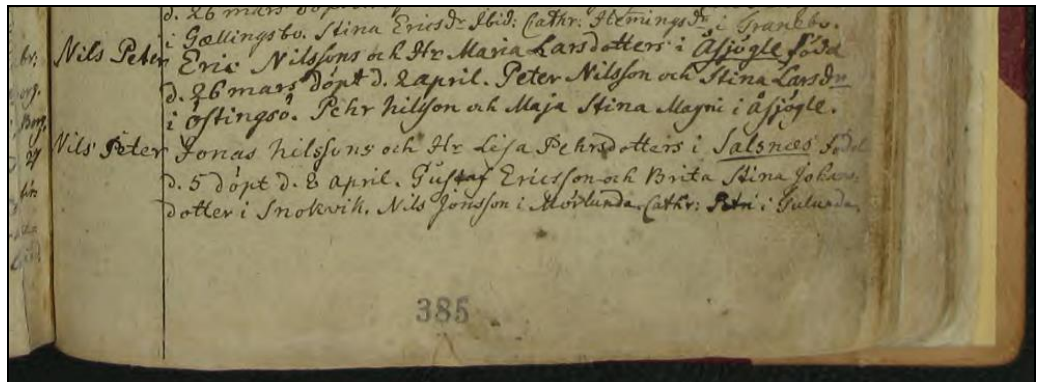 d. 26 mars
i Gællingsbo. Stina Ericsdr Ibid: Cathr: Hemingsdr i Tranebo.
Nils Peter Eric Nilssons och Hr Maria Larsdotters i Åsjögle född
d. 26 mars döpt d. 2 april. Peter Nilsson och Stina Larsdr
i Östingsö. Pehr Nilsson och Maja Stina Magni i åsjögle.
Nils Peter Jonas Nilssons och Hr Lisa Pehrsdotters i Salsnæs född
d. 5 döpt d. 8 april. Gustaf Ericsson och Brita Stina Johans-
dotter i Snokvik. Nils Jonsson i Mörlunda. Cathr: Petri i Gulunda.
385